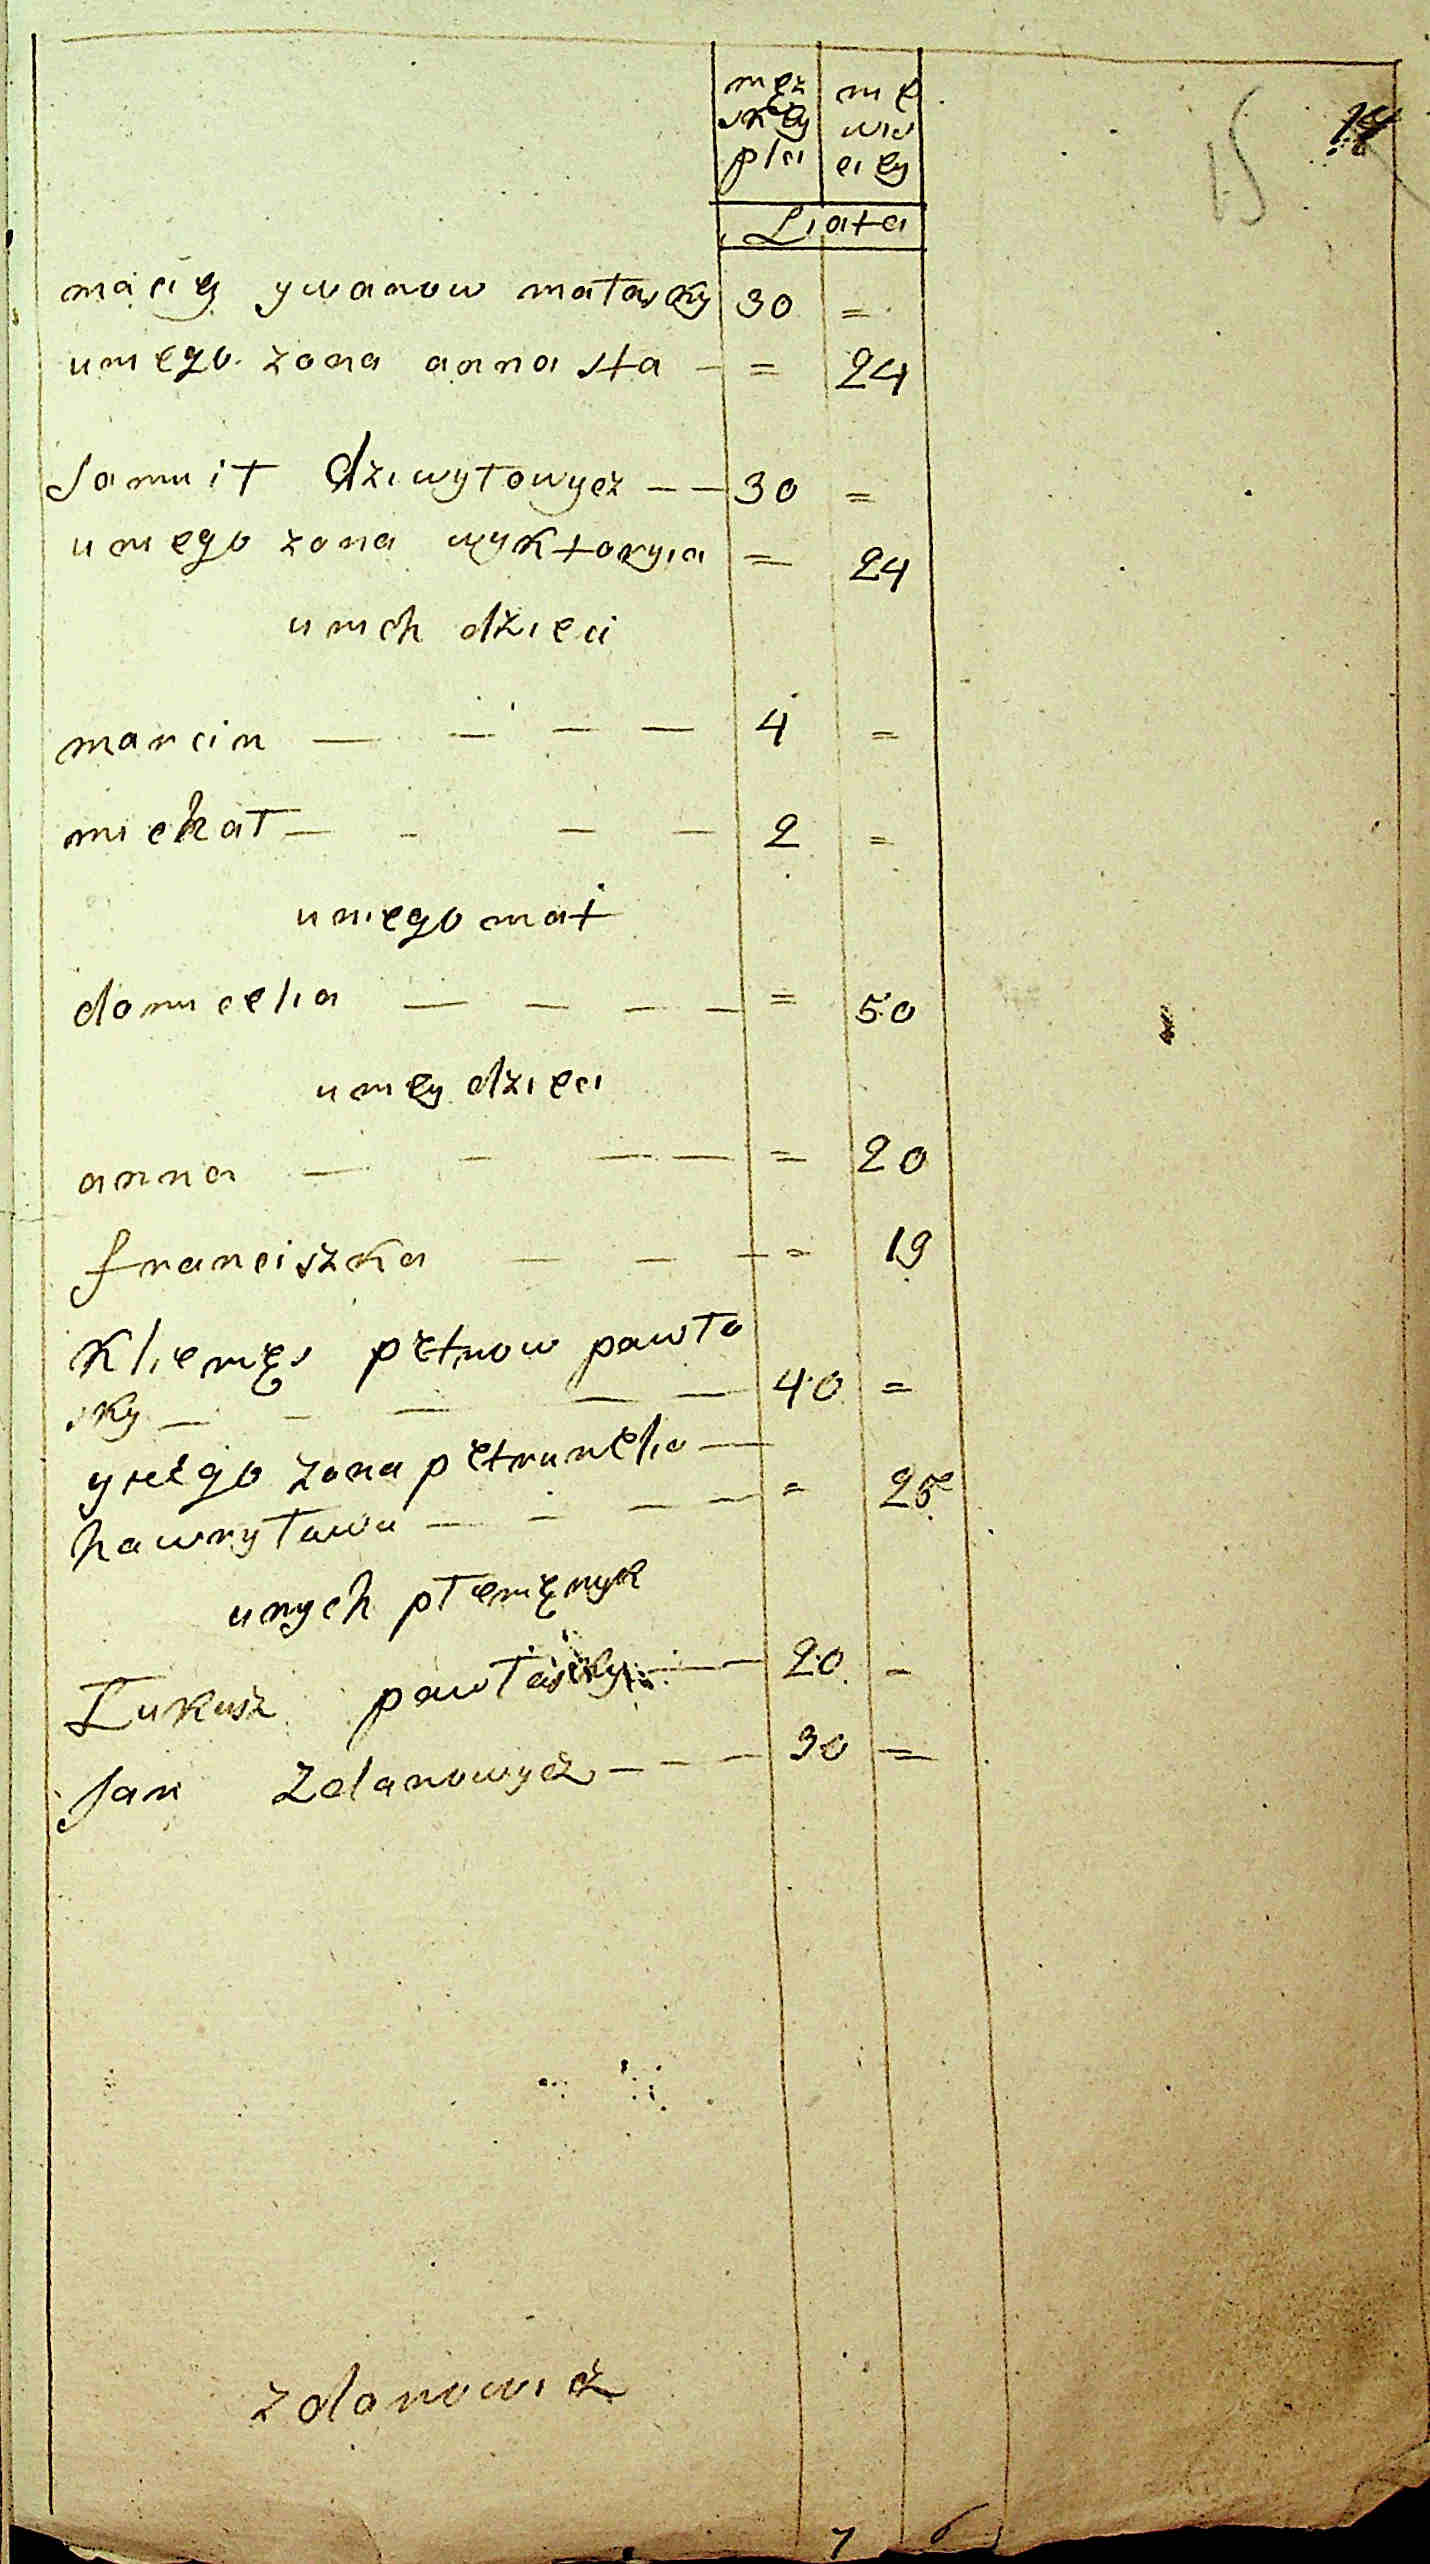 męż mę
skiey wie
płci ciey
Liata
maciey ywanow matasky 30 =
uniego zona annasta - = 24
Samuił dziwyłowycz - - 30 =
uniego zona wyktoryia = 24
unich dzieci
marcin — — — — 4 =
michał — - — — 2 =
uniego mat
daniicelia — — — — = 50
uniey dzieci
anna — - — — = 20
franciszka — — — = 19
Kliemęs petrow pawło
sky — - — — — 40 =
yiego zona petrunelia —
hawryłowa — - — — = 25
unych płemięnyk
Łukasz pawłosky — — 20 =
Jan Zdanowycz - - - 30 =
zdanowicz
7 6